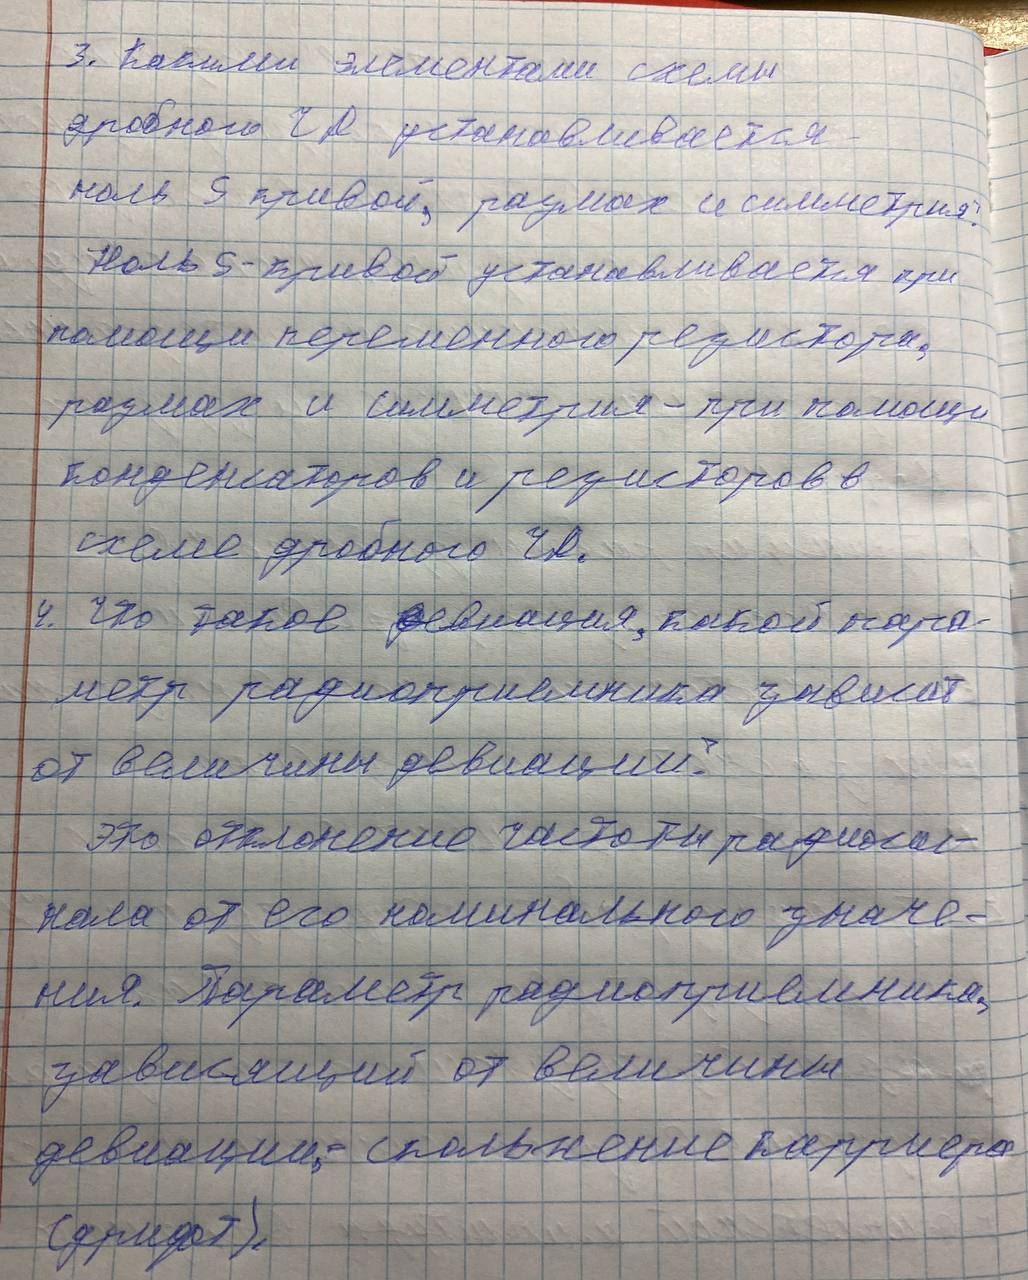 3. Какими элементами схемы
дробного ЧД устанавливается
ноль S кривой, размах и симметрия?
Ноль S-кривой устанавливается при
помощи переменного резистора,
размах и симметрия - при помощи
конденсаторов и резисторов в
схеме дробного ЧД.
4. Что такое девиация, какой пара-
метр радиоприемника зависит
от величины девиации?
Это отклонение частоты радиосиг-
нала от его номинального значе-
ния. Параметр радиоприемника,
зависящий от величины
девиации, - скольжение каррпиера
(дрифт).